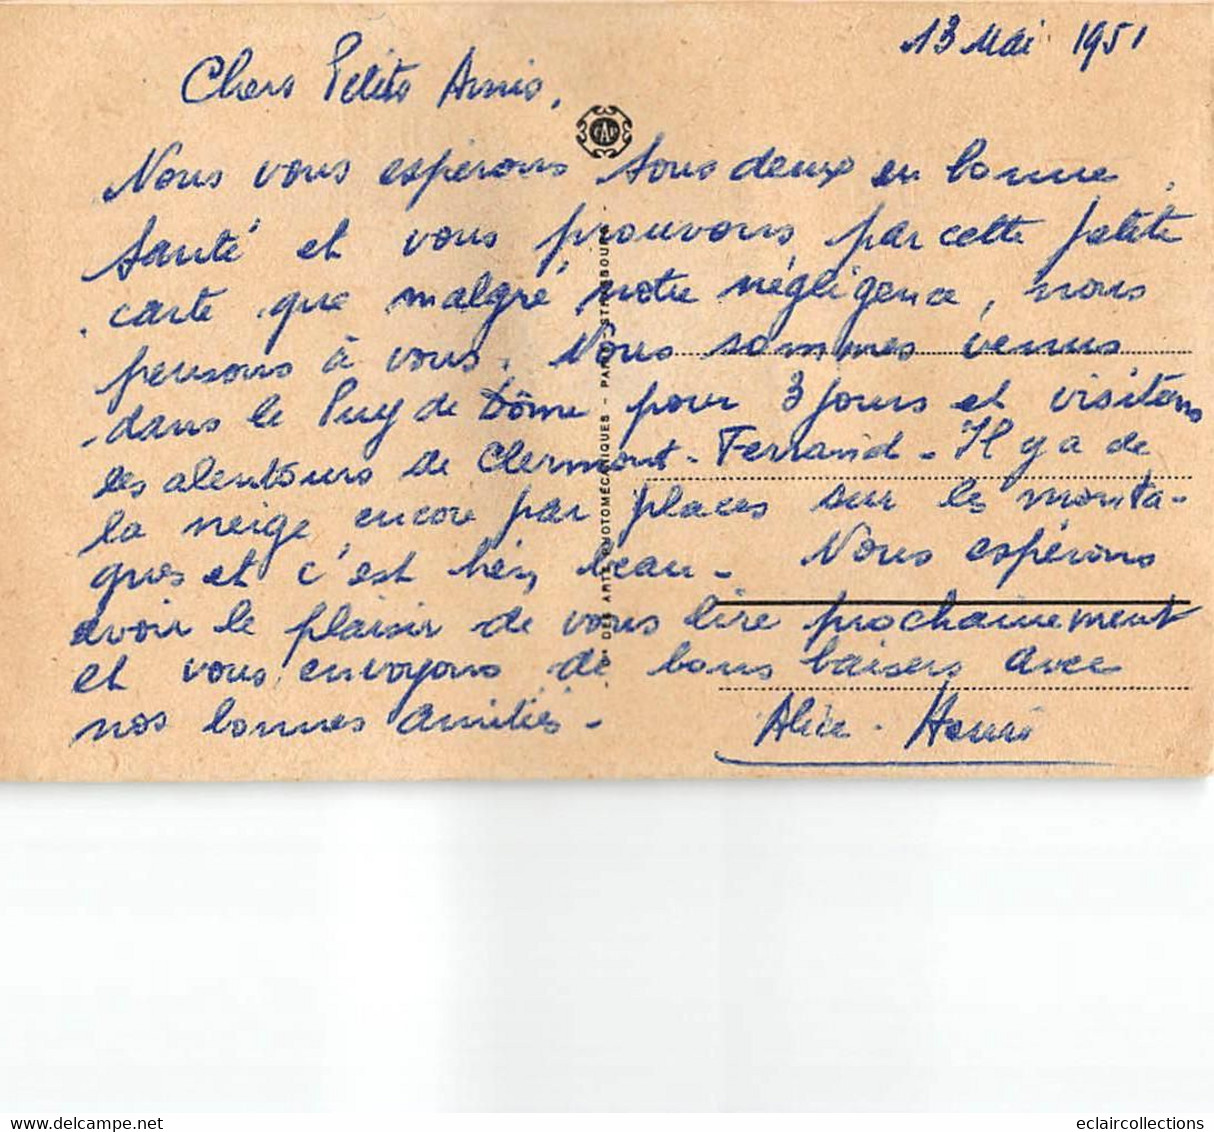 13 Mai 1951
Chers Petits Amis,
CAP
Nous vous espérons tous deux en bonne
santé et vous prouvons par cette petite
carte que malgré notre négligence, nous
pensons à vous. Nous sommes venus
dans le Puy de Dôme pour 3 jours et visitons
les alentours de Clermont-Ferrand - Il y a de
la neige encore par places sur les monta-
gnes et c'est très beau - Nous espérons
avoir le plaisir de vous lire prochainement
et vous envoyons de bons baisers avec
nos bonnes amitiés -
Alice - Henri
DES ARTS PHOTOMÉCANIQUES - PARIS-STRASBOURG -
eclaircollections